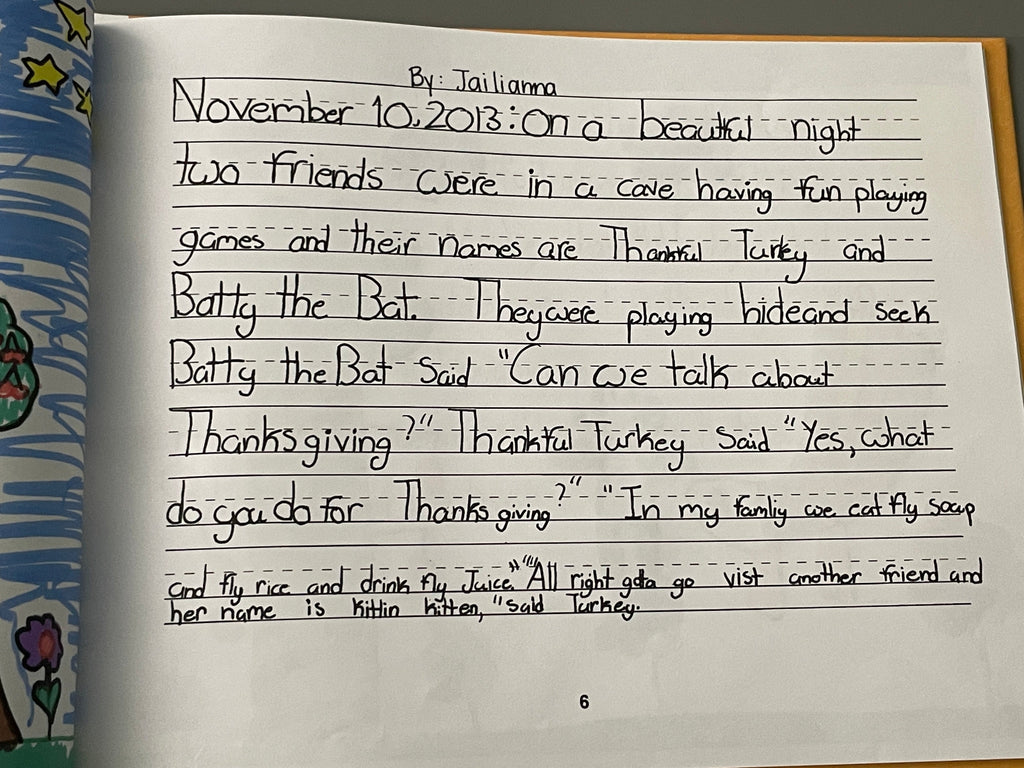 By: Jailianna
November 10, 2013: On a beautful night
two friends were in a cave having fun playing
games and their names are Thankful Turky and
Batty the Bat. They were playing hide and seek
Batty the Bat said "Can we talk about
Thanksgiving?" Thankful Turkey said "Yes, what
do you do for Thanksgiving?" "In my famliy we eat fly soap
and fly rice and drink fly Juice." "All right gota go vist another friend and
her name is Kitlin Kitten, "said Turkey.
6